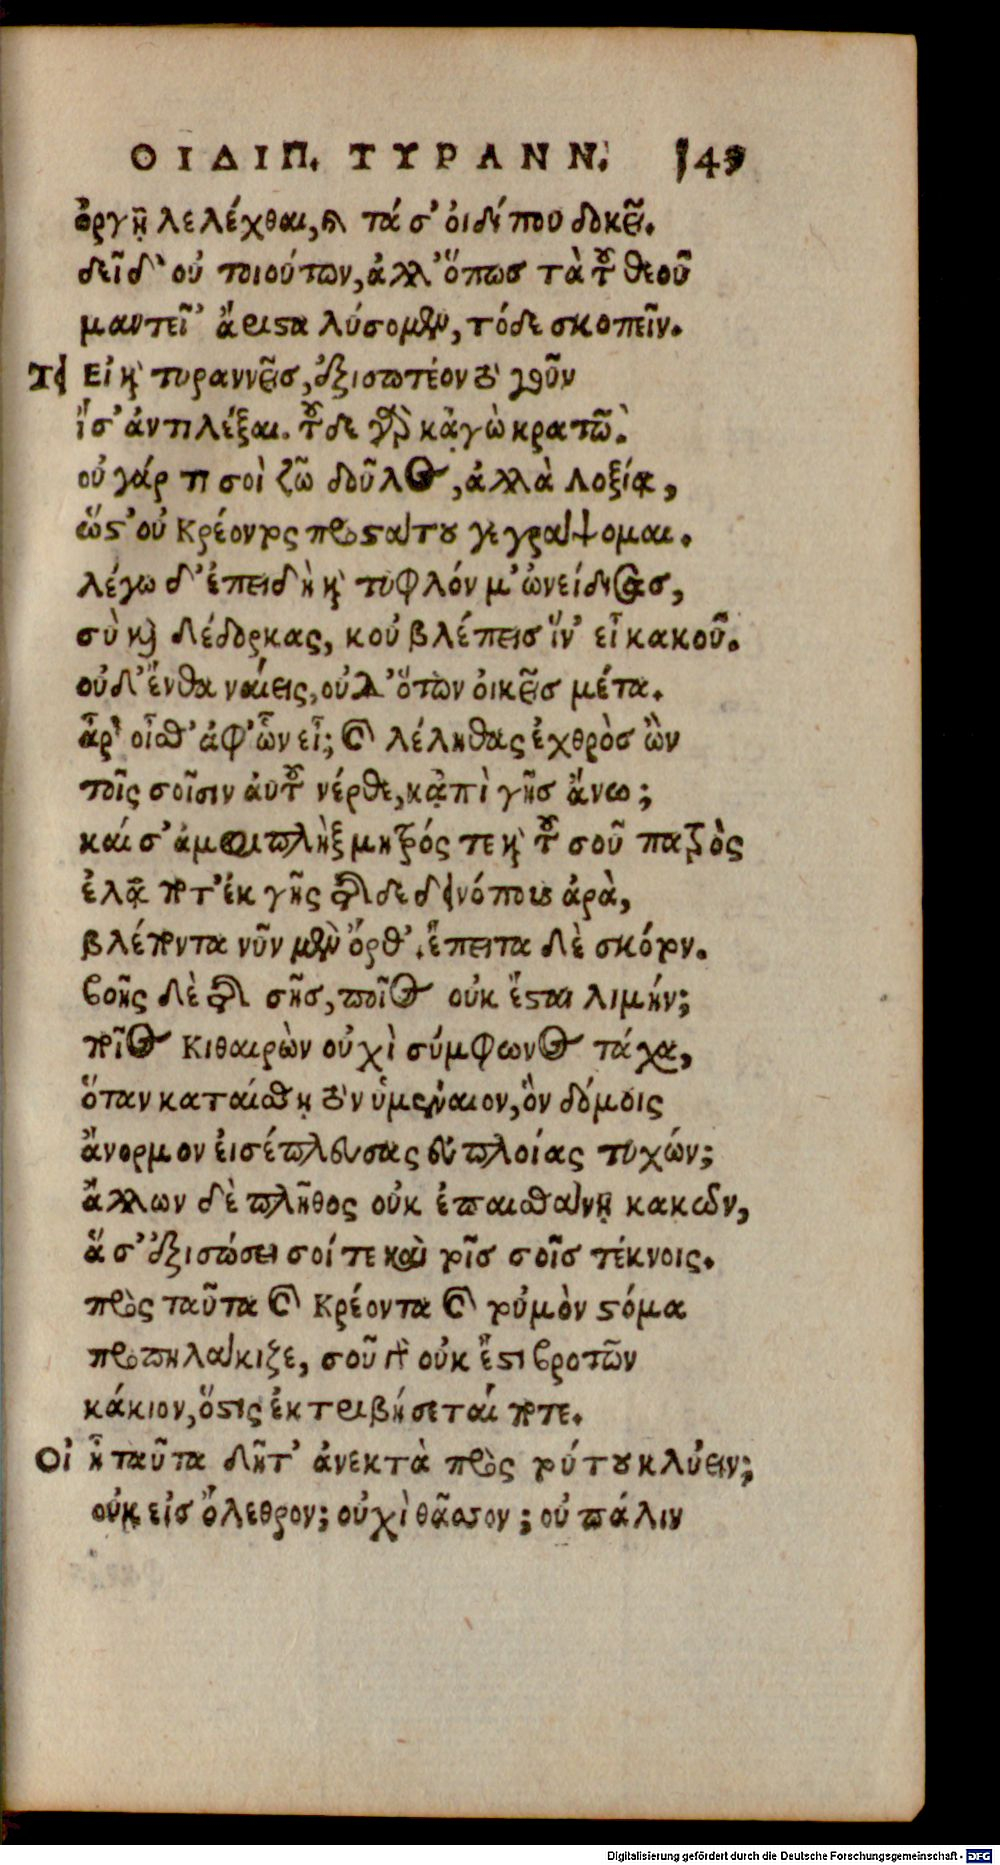 ΟΙΔΙΠ. ΤΥΡΑΝΝ. 149
ὀργῇ λελέχθαι, καὶ τά σ' οἰδίπου δοκεῖ.
δεῖ δ' οὐ τοιούτων, ἀλλ' ὅπως τὰ τοῦ θεοῦ
μαντεῖ' ἄριστα λύσομεν, τόδε σκοπεῖν.
Τει Εἰ καὶ τυραννεῖς, ἐξισωτέον τὸ γοῦν
ἴσ' ἀντιλέξαι. τοῦδε γὰρ κᾀγὼ κρατῶ.
οὐ γάρ τι σοὶ ζῶ δοῦλος, ἀλλὰ Λοξίᾳ,
ὥστ' οὐ Κρέοντος προστάτου γεγράψομαι.
λέγω δ' ἐπειδὴ καὶ τυφλόν μ' ὠνείδισας,
σὺ καὶ δέδορκας, κοὐ βλέπεις ἵν' εἶ κακοῦ.
οὐδ' ἔνθα ναίεις, οὐδ' ὅτων οἰκεῖς μέτα.
ἆρ' οἶσθ' ἀφ' ὧν εἶ; καὶ λέληθας ἐχθρὸς ὢν
τοῖς σοῖσιν αὐτοῦ νέρθε, κᾀπὶ γῆς ἄνω;
καί σ' ἀμφιπλὴξ μητρός τε καὶ τοῦ σοῦ πατρὸς
ἐλᾷ ποτ' ἐκ γῆς τῆσδε δεινόπους ἀρὰ,
βλέποντα νῦν μὲν ὄρθ', ἔπειτα δὲ σκότον.
βοῆς δὲ τῆς σῆς, ποῖος οὐκ ἔσται λιμήν;
ποῖος Κιθαιρὼν οὐχὶ σύμφωνος τάχα,
ὅταν καταίσθῃ τὸν ὑμέναιον, ὃν δόμοις
ἄνορμον εἰσέπλευσας εὐπλοίας τυχών;
ἄλλων δὲ πλῆθος οὐκ ἐπαισθάνῃ κακῶν,
ἅ σ' ἐξισώσει σοί τε καὶ τοῖς σοῖς τέκνοις.
πρὸς ταῦτα καὶ Κρέοντα καὶ τοὐμὸν στόμα
προπηλάκιζε, σοῦ γὰρ οὐκ ἔστι βροτῶν
κάκιον, ὅστις ἐκτριβήσεταί ποτε.
Οἰ ἦ ταῦτα δῆτ' ἀνεκτὰ πρὸς τούτου κλύειν;
οὐκ εἰς ὄλεθρον; οὐχὶ θᾶσσον; οὐ πάλιν
Digitalisierung gefördert durch die Deutsche Forschungsgemeinschaft - DFG